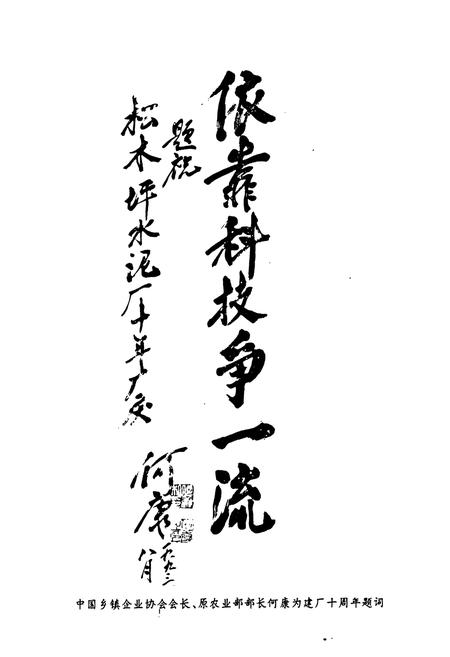 依靠科技争一流
题祝
松木坪水泥厂十年大庆
何康
一九九三
八月
中国乡镇企业协会会长、原农业部部长何康为建厂十周年题词